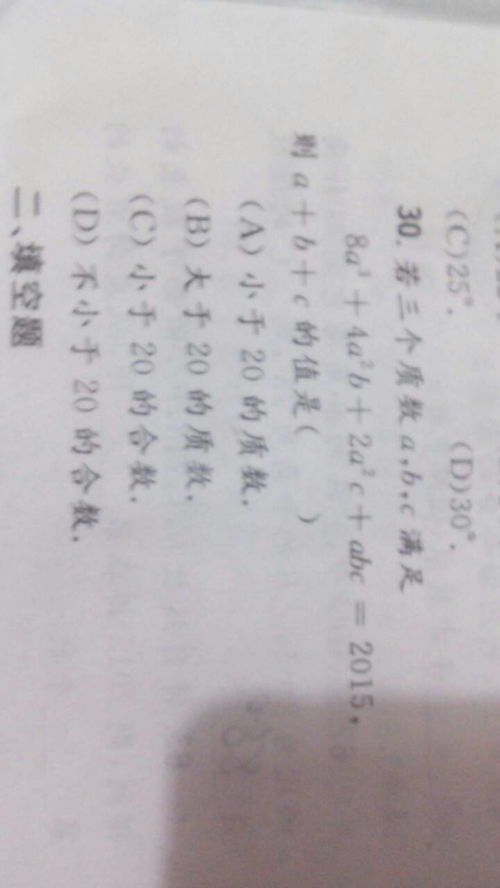 (C)25°. (D)30°.
30. 若三个质数 a,b,c 满足
8a³＋4a²b＋2a²c＋abc＝2015,
则 a＋b＋c 的值是(  )
(A) 小于 20 的质数.
(B) 大于 20 的质数.
(C) 小于 20 的合数.
(D) 不小于 20 的合数.
二、填空题